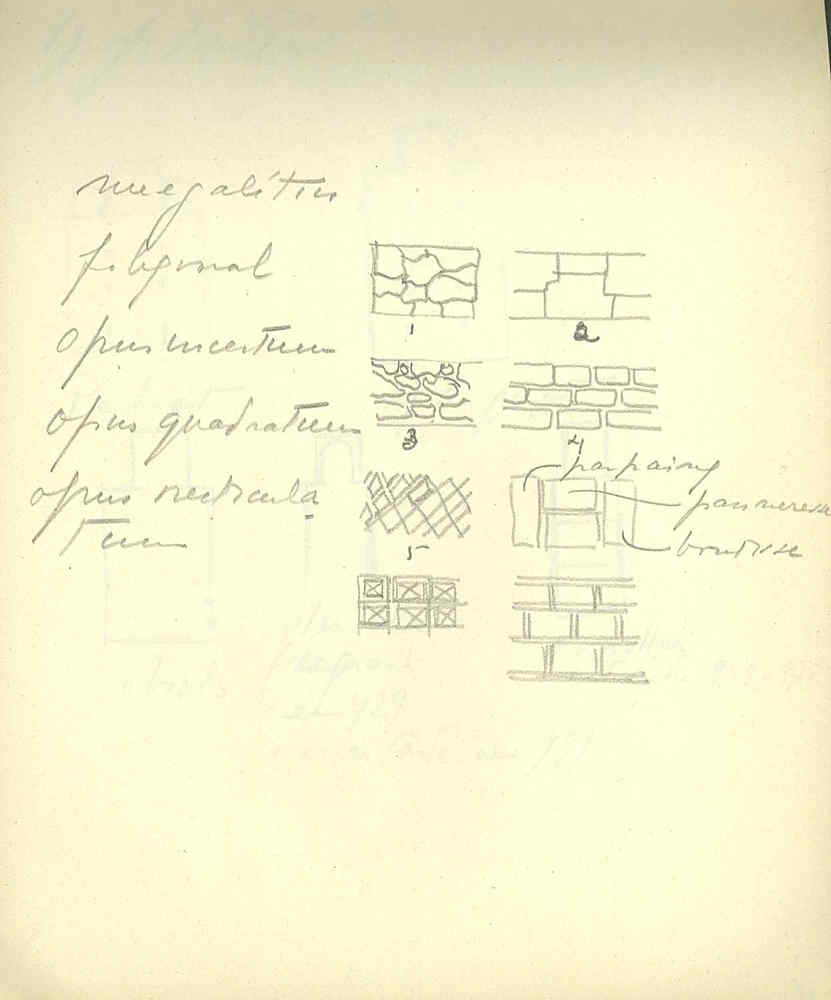 megalítin
poligonal
opus incertum
opus quadratum
opus recticula
tum
1
2
3
4
parpaing
panneresse
boutisse
5